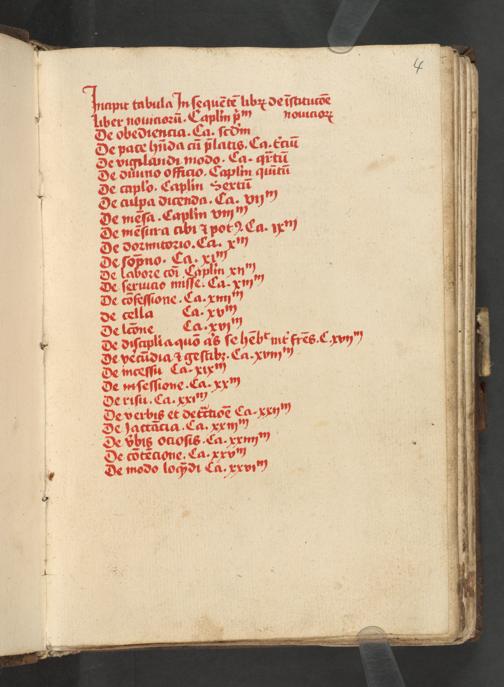 4
Incipit tabula In sequētē libꝝ de īstitucōe
liber nouiciorū. Caplm̄ pm nouicioꝝ
De obediencia. Ca. scdm
De pace hn̄da cū p̄latis. Ca. t̄ciū
De vigilandi modo. Ca. qrtū
De diuino officio. Caplm̄ quītū
De caplo. Caplm̄ Sextū
De culpa dicenda. Ca. viim
De mēsa. Caplm̄ viiim
De mēsura cibi ⁊ potꝯ. Ca. ixm
De dormitorio. Ca. xm
De sopno. Ca. xim
De labore cōi Caplm̄ xiim
De seruicio misse. Ca. xiiim
De cōfessione. Ca. xiiiim
de cella Ca. xvm
De lcōne Ca. xvim
De disciplīa quō se hēbt int̄ frēs. C. xviim
De vecūdia ⁊ gestibꝫ. Ca. xviiim
De incessu Ca. xixm
De insessione. Ca. xxm
De risu. Ca. xxim
De verbis et det̄ctiōē Ca. xxiim
De Iactācia. Ca. xxiiim
De v̄bis ociosis. Ca. xxiiiim
De cōtēcione. Ca. xxvm
De modo loqn̄di Ca. xxvim